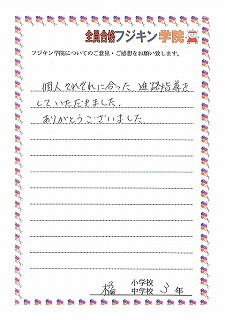 全員合格フジキン学院
フジキン学院についてのご意見・ご感想をお願い致します。
個人それぞれに合った 進路指導を
していただきました。
ありがとうございました
小学校
中学校 3 年